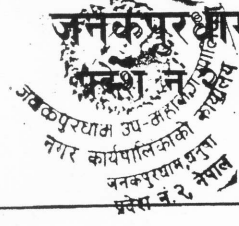 जनकपुरधाम
प्रदेश नं
जनकपुरधाम उप-महानगरपालिका
नगर कार्यपालिकाको कार्यालय
जनकपुरधाम धनुषा
प्रदेश नं. २, नेपाल